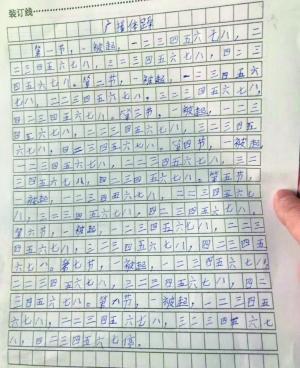 装订线
广播体操
第一节，一被起，一二三四五六七八，二
二三四五六七八，三二三四五六七八，四二三
四五六七八。第二节，一被起，一二三四五六
七八，二二三四五六七八，三二三四五六七八，
四二三四五六七八。第三节，一被起，一二三
四五六七八，二二三四五六七八，三二三四五
六七八，四二三四五六七八。第四节，一被起，
一二三四五六七八，二二三四五六七八，三二
三四五六七八，四二三四五六七八。第五节，
一被起，一二三四五六七八，二二三四五六七
八，三二三四五六七八，四二三四五六七八。
第六节，一被起，一二三四五六七八，二二三
四五六七八，三二三四五六七八，四二三四五
六七八。第七节，一被起，一二三四五六七八，
二二三四五六七八，三二三四五六七八，四二
三四五六七八。第八节，一被起，一二三四五
六七八，二二三四五六七八，三二三四五六七
八，四二三四五六七停。